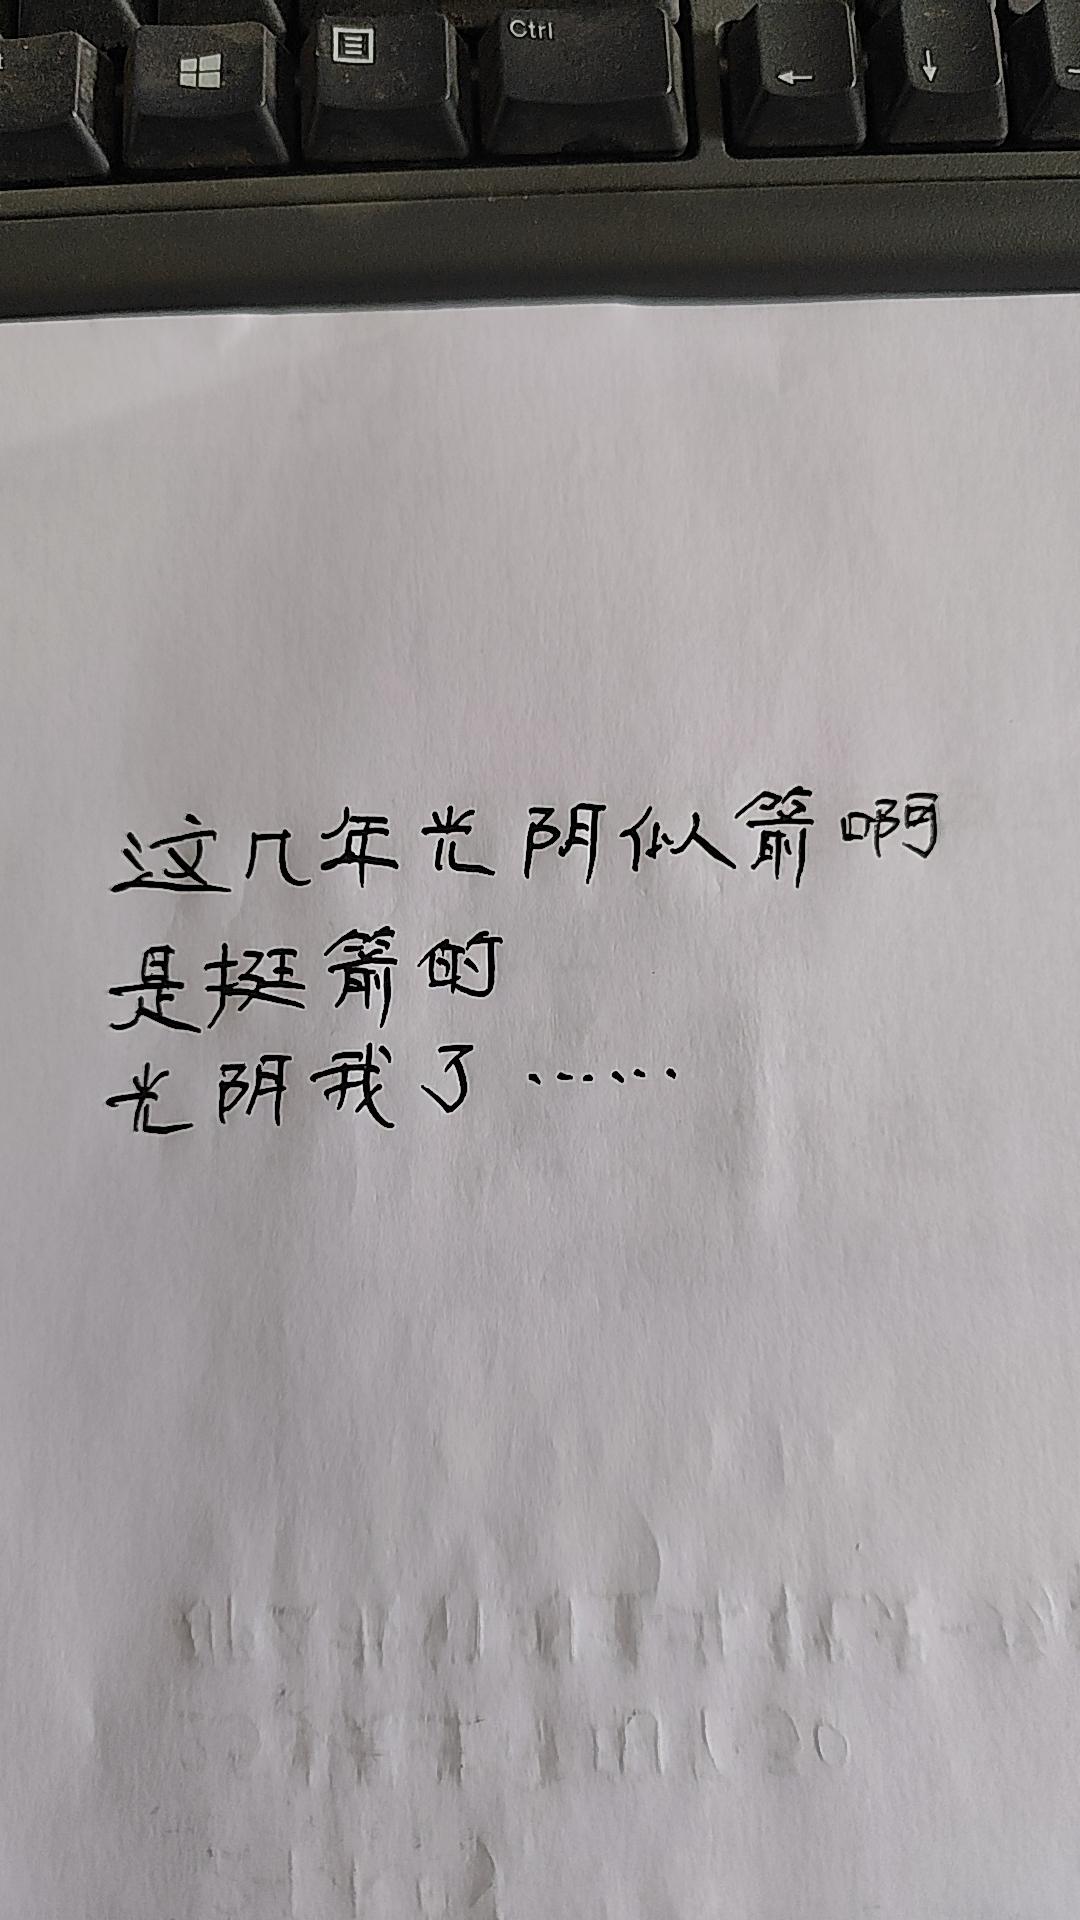 Ctrl
← ↓
这几年光阴似箭啊
是挺箭的
光阴我了……